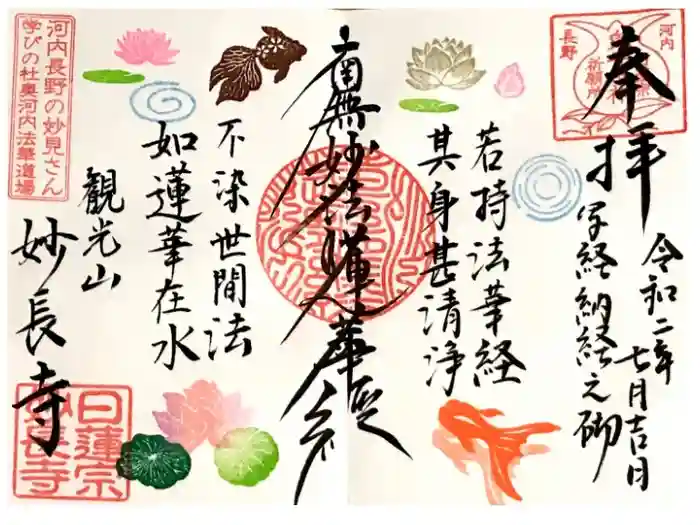 奉拝
令和二年
七月吉日
写経納経之砌
河内
長野
祈願所
若持法華経
其身甚清浄
南無妙法蓮華経
不染世間法
如蓮華在水
観光山
妙長寺
河内長野の妙見さん
学びの杜奥河内法華道場
日蓮宗
妙長寺